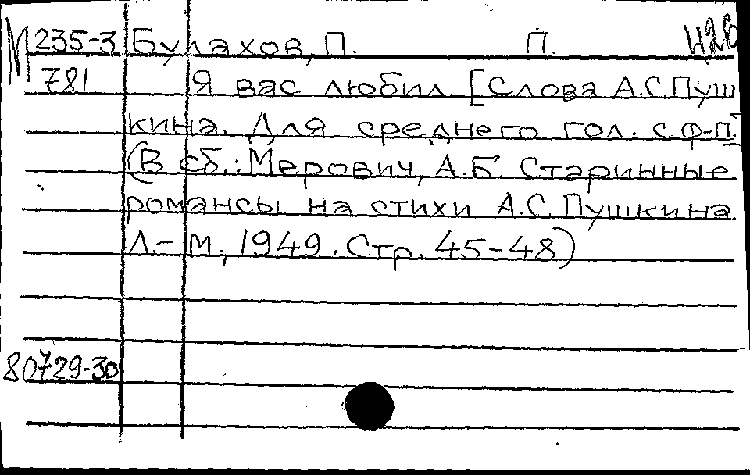 М 235-3 Булахов, П. П. 42в
781 Я вас любил [Слова А.С.Пуш
кина. Для среднего гол. с ф-п.]
(В сб.: Мерович, А.Б. Старинные
романсы на стихи А.С.Пушкина.
Л.-М., 1949. Стр. 45-48)
80729-30